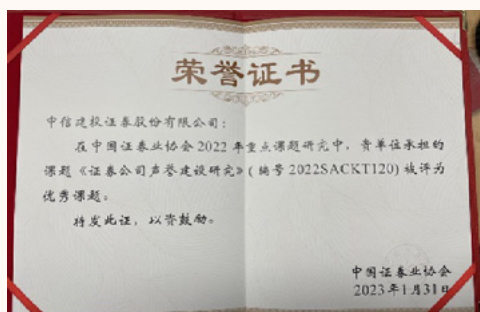 荣誉证书
中信建投证券股份有限公司：
在中国证券业协会2022年重点课题研究中，贵单位承担的
课题《证券公司声誉建设研究》(编号2022SACKT120)被评为
优秀课题。
特发此证，以资鼓励。
中国证券业协会
2023年1月31日